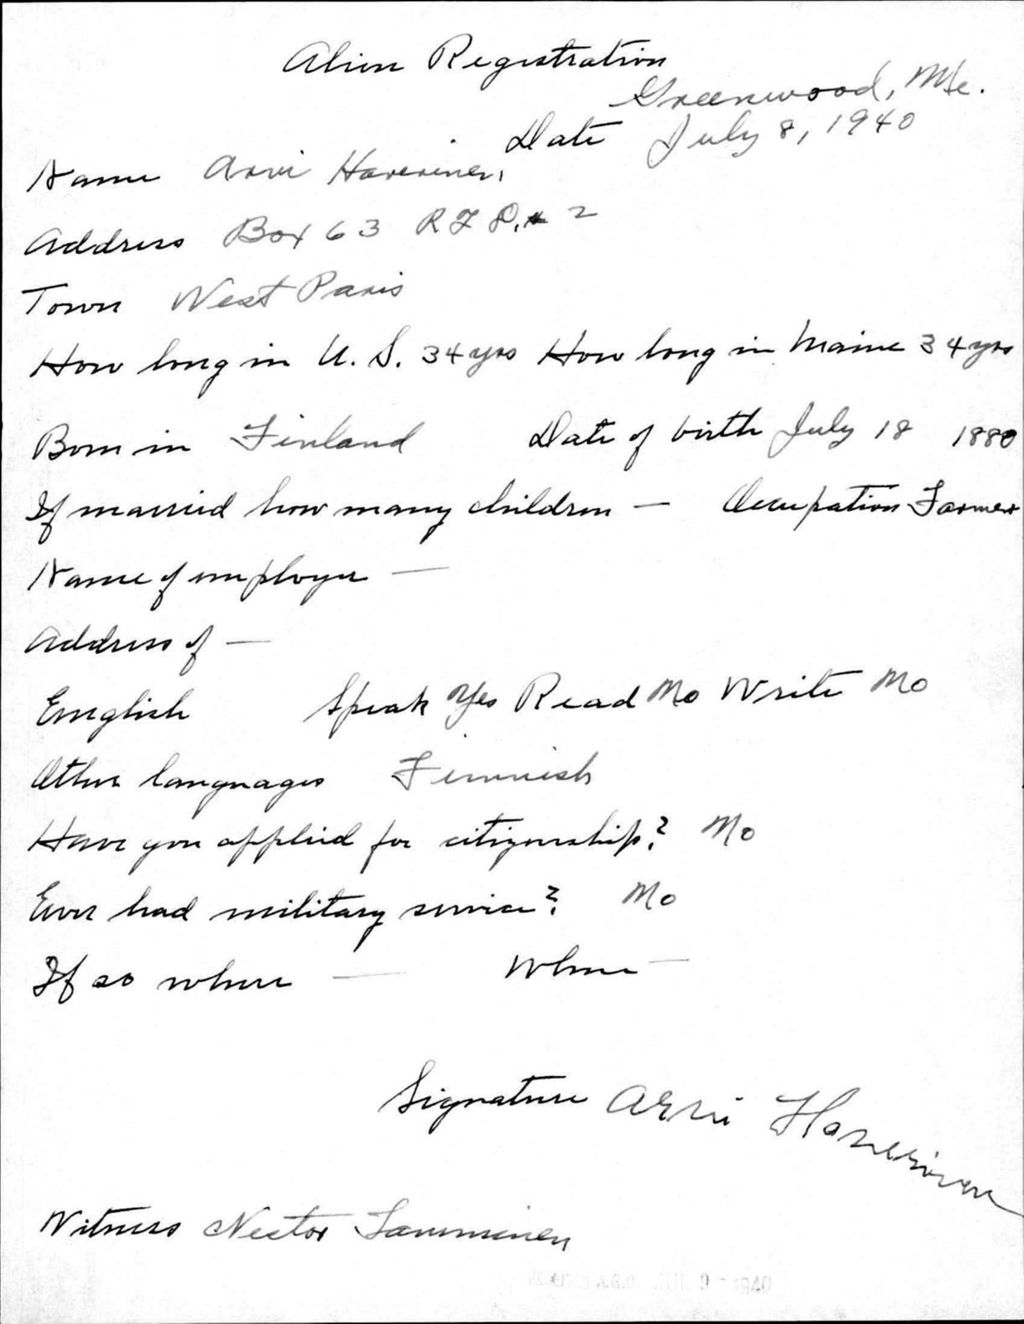 Alien Registration
Greenwood, Me.
Date July 8, 1940
Name Arvi
Address Box 63 R F D. # 2
Town West Paris
How long in U. S. 34 yrs How long in Maine 34 yrs
Born in Finland Date of birth July 18 1880
If married how many children — Occupation Farmer
Name of employer —
Address of —
English Speak Yes Read No Write No
Other languages Finnish
Have you applied for citizenship? No
Ever had military service? No
If so where — When —
Signature Arvi
Witness Nestor Tamminen